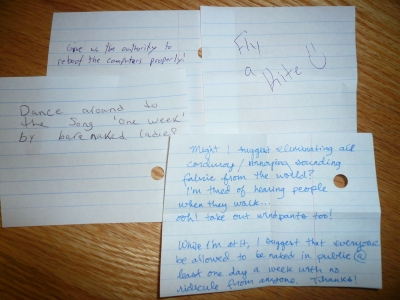 Give us the authority to
reboot the computers properly!
Fly
a
kite
Dance around to
the song 'One Week'
by barenaked ladies
Might I suggest eliminating all
corduroy / annoying sounding
fabric from the world?
I'm tired of hearing people
when they walk...
ooh! take out windpants too!
While I'm at it, I suggest that everyone
be allowed to be naked in public @
least one day a week with no
ridicule from anyone. Thanks!